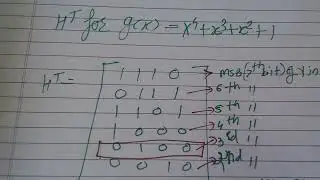 H^T for g(x) = x^4+x^3+x^2+1
H^T = 1 1 1 0 → msb (7th bit) of
0 1 1 1 → 6th "
1 1 0 1 → 5th "
1 0 0 0 → 4th "
0 1 0 0 → 3rd "
0 0 1 0 → 2nd "